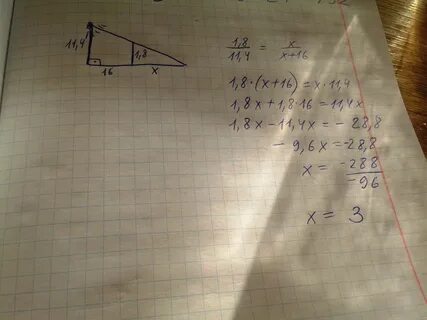 11,4
1,8
16 x
1,8/11,4 = x/x+16
1,8·(x+16)=x·11,4
1,8x+1,8·16=11,4x
1,8x-11,4x=-28,8
-9,6x=-28,8
x= -288/-96
x = 3